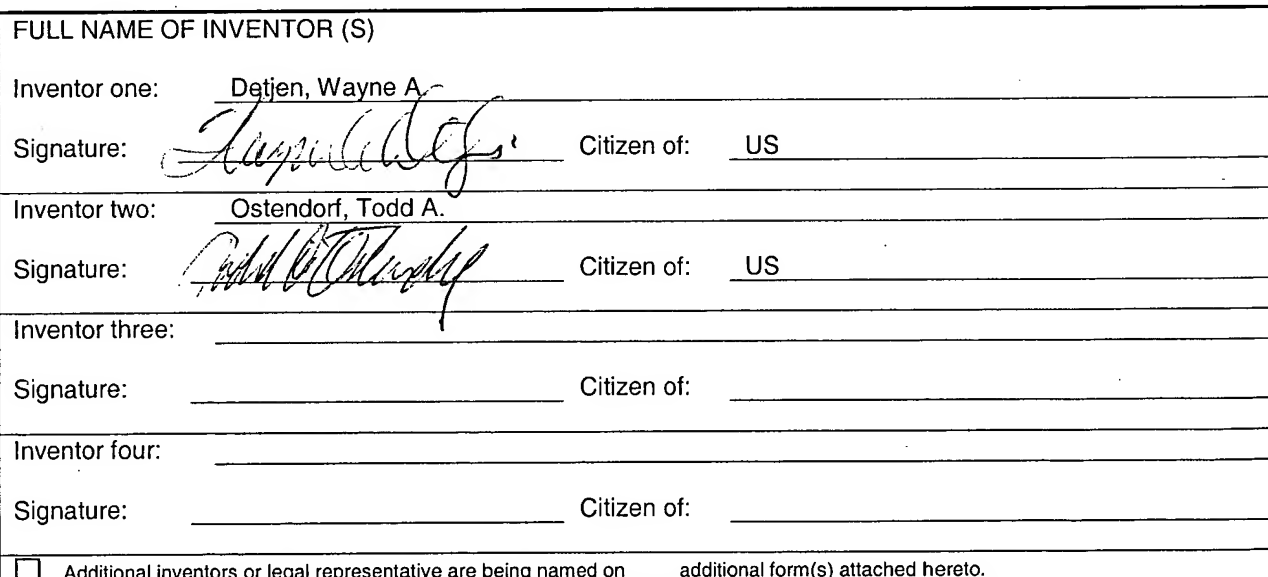 FULL NAME OF INVENTOR (S)
Inventor one: Detjen, Wayne A
Signature: Citizen of: US
Inventor two: Ostendorf, Todd A.
Signature: Citizen of: US
Inventor three:
Signature: Citizen of:
Inventor four:
Signature: Citizen of:
Additional inventors or legal representative are being named on additional form(s) attached hereto.